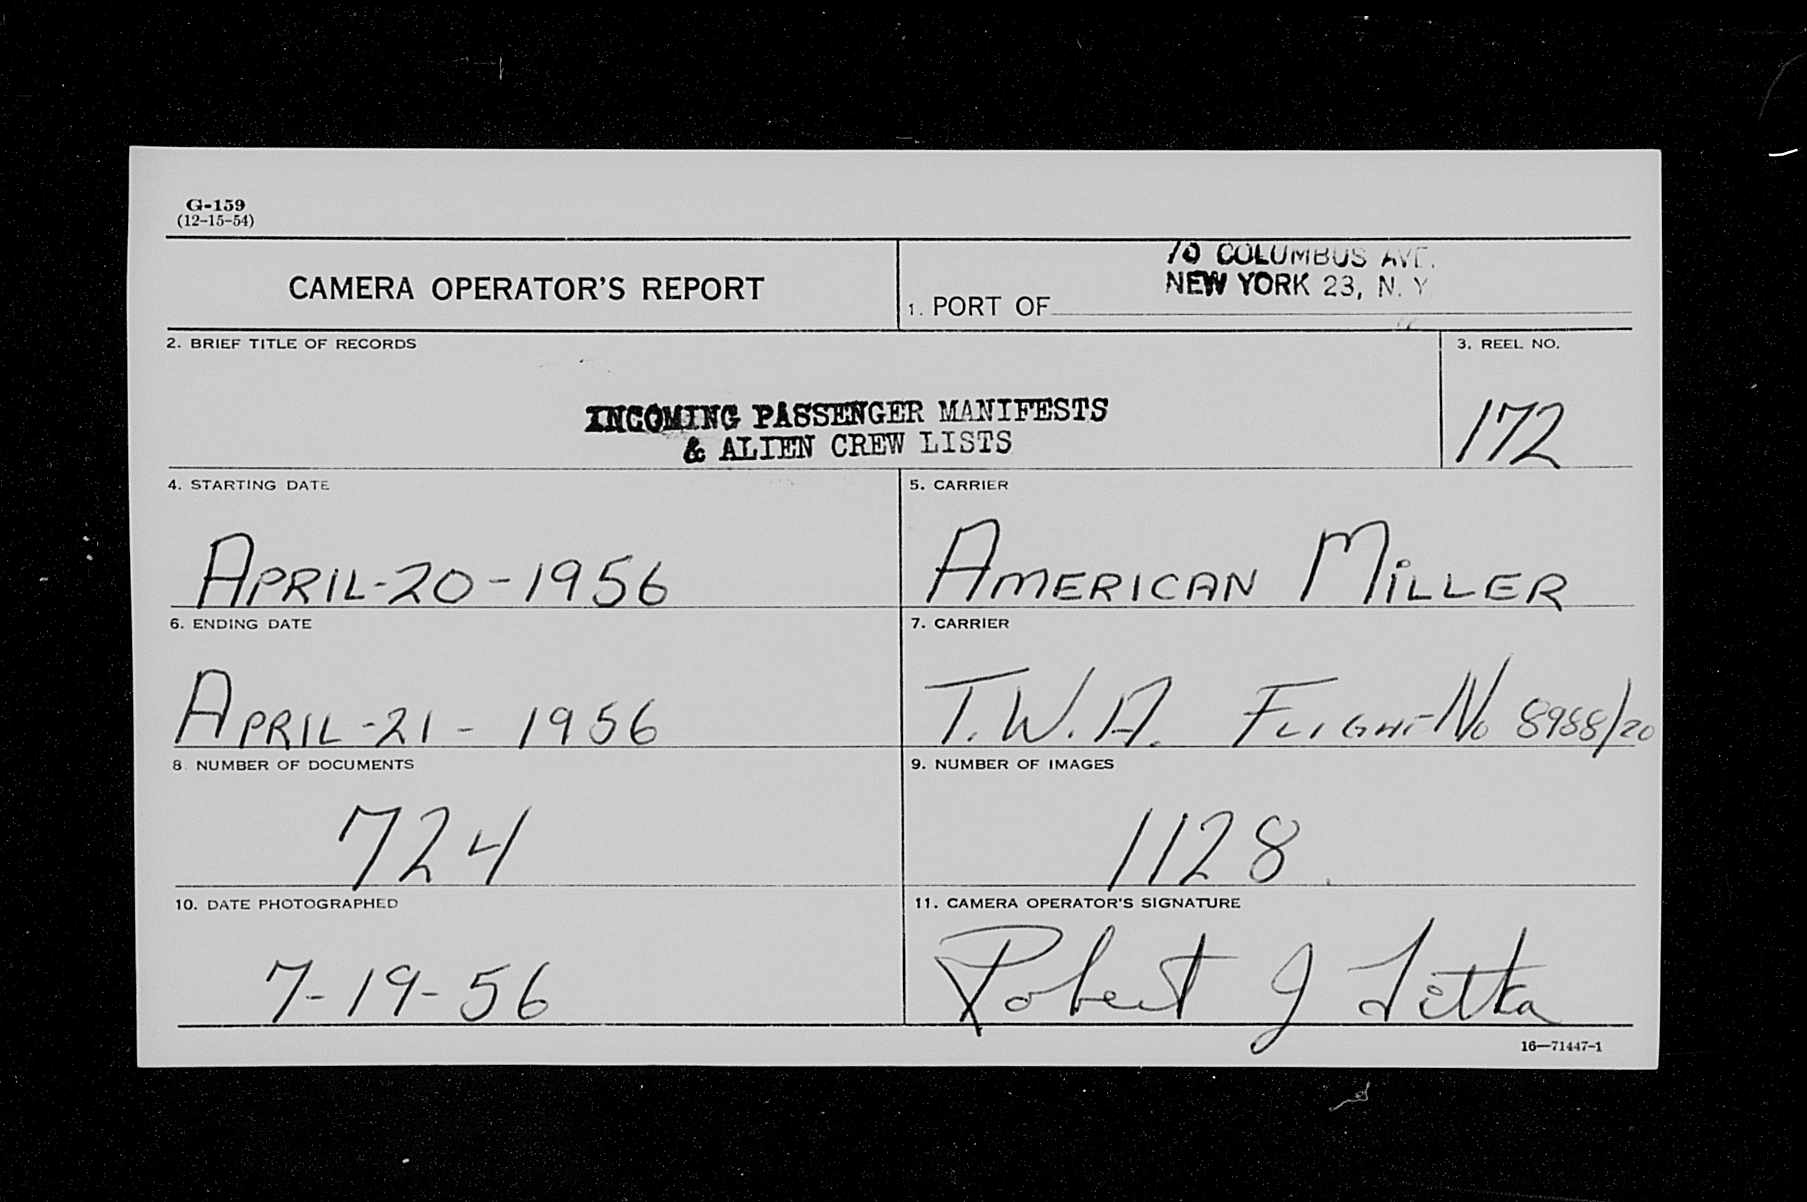 G-159
(12-15-54)
CAMERA OPERATOR'S REPORT
70 COLUMBUS AVE.
NEW YORK 23, N. Y
1. PORT OF
2. BRIEF TITLE OF RECORDS
3. REEL NO.
INCOMING PASSENGER MANIFESTS
& ALIEN CREW LISTS
172
4. STARTING DATE
5. CARRIER
APRIL-20-1956
AMERICAN MILLER
6. ENDING DATE
7. CARRIER
APRIL-21-1956
T.W.A. FLIGHT No 8988/20
8. NUMBER OF DOCUMENTS
9. NUMBER OF IMAGES
724
1128
10. DATE PHOTOGRAPHED
11. CAMERA OPERATOR'S SIGNATURE
7-19-56
Robert J
16—71447-1